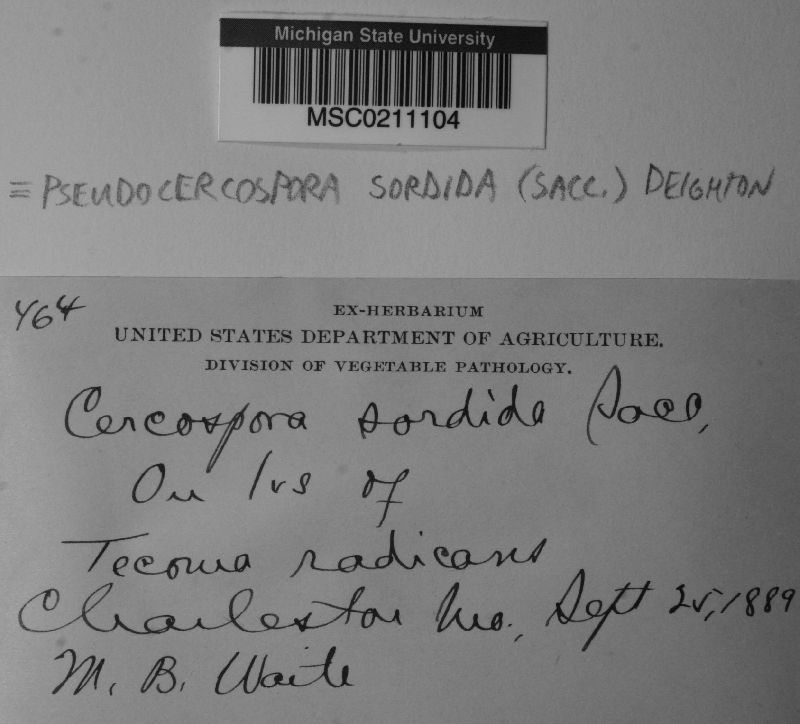 Michigan State University
MSC0211104
= PSEUDOCERCOSPORA SORDIDA (SACC.) DEIGHTON
464
EX-HERBARIUM
UNITED STATES DEPARTMENT OF AGRICULTURE.
DIVISION OF VEGETABLE PATHOLOGY.
Cercospora sordida Sacc.
On lvs of
Tecoma radicans
Charleston Mo., Sept 25, 1889
M. B. Waite